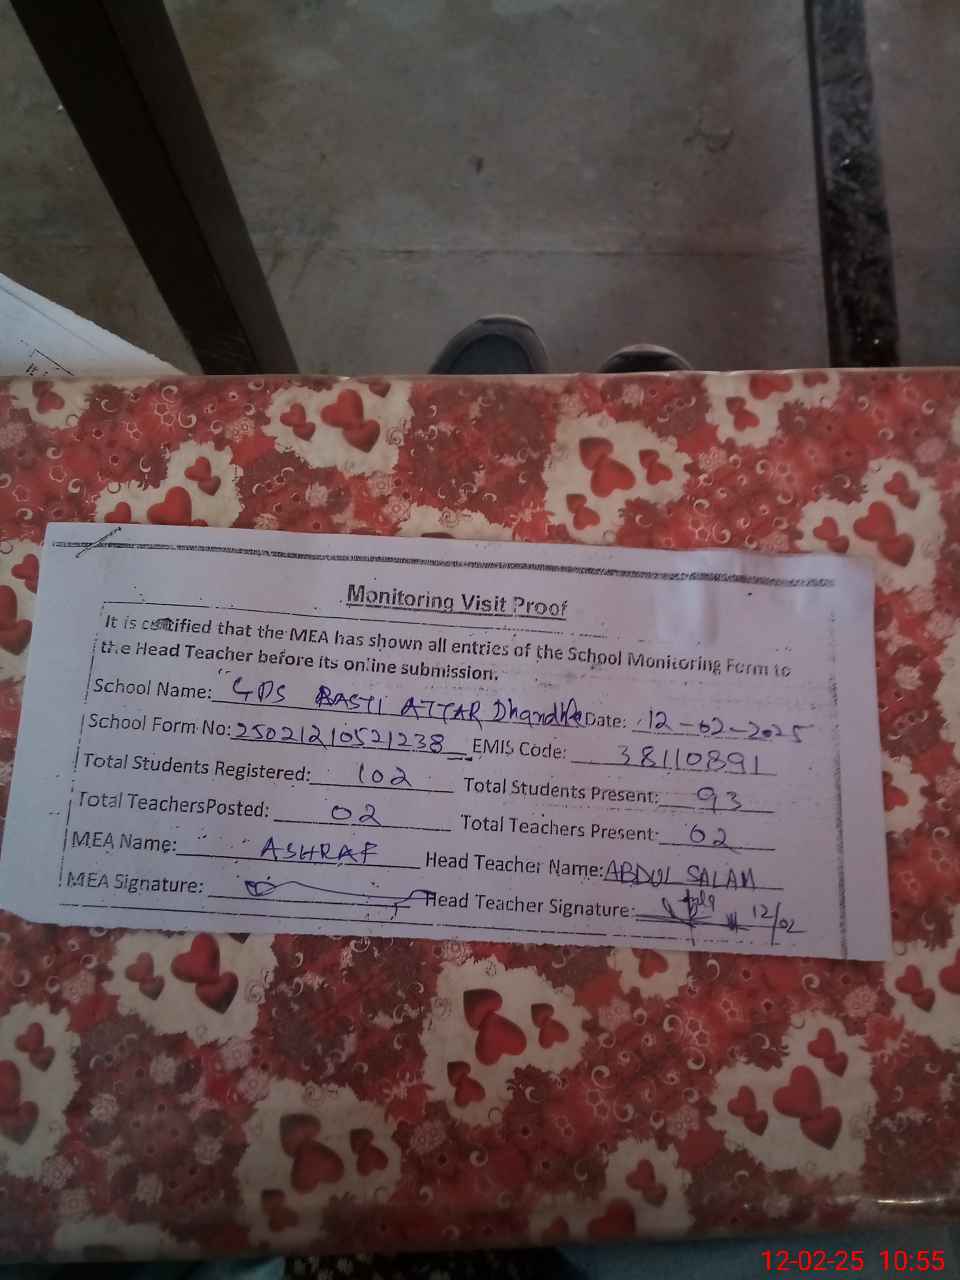 Monitoring Visit Proof
It is certified that the MEA has shown all entries of the School Monitoring Form to
the Head Teacher before its online submission.
School Name: GPS BASTI ATTAR Dhandhla Date: 12-02-2025
School Form No: 25021210521238 EMIS Code: 38110891
Total Students Registered: 102 Total Students Present: 93
Total TeachersPosted: 02 Total Teachers Present: 02
MEA Name: ASHRAF Head Teacher Name: ABDUL SALAM
MEA Signature: Head Teacher Signature: 12/02
12-02-25 10:55